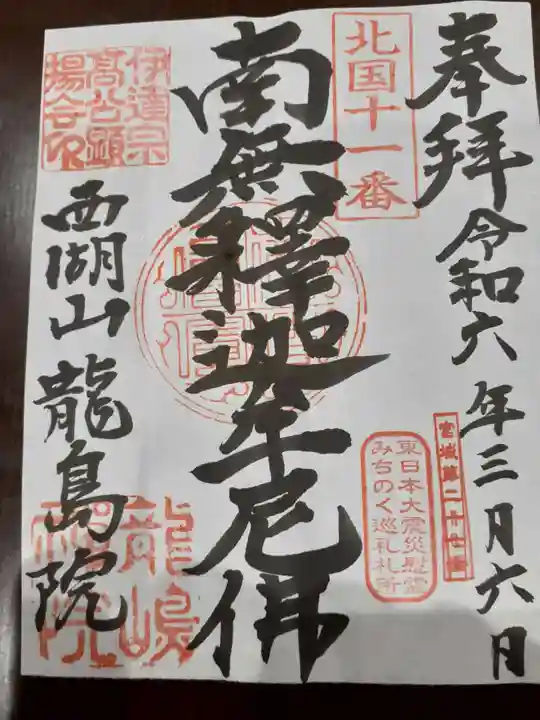 奉拝 令和六年三月六日
北国十一番
宮城第二十七番
東日本大震災慰霊
みちのく巡礼札所
南無釋迦牟尼佛
伊達宗
髙公顕
揚会印
西湖山龍島院
龍嶋
院